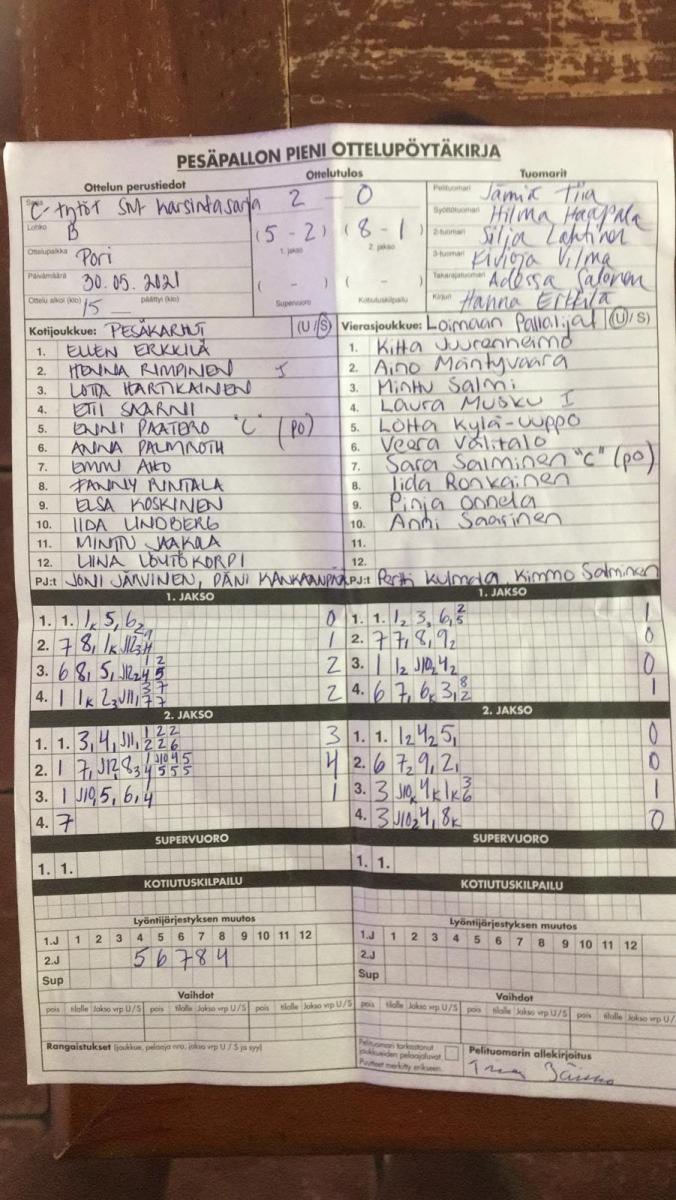 PESÄPALLON PIENI OTTELUPÖYTÄKIRJA
Ottelun perustiedot
Sarja C-tytöt SM karsintasarja
Lohko B
Ottelupaikka Pori
Päivämäärä 30.05.2021
Ottelu alkoi (klo) 15 päättyi (klo)
Ottelutulos
2 - 0
(5 - 2) (8 - 1)
1. jakso 2. jakso
( - ) ( - )
Supervuoro Kotiutuskilpailu
Tuomarit
Pelituomari Jämiä Tiia
Syöttötuomari Hilma Haapala
2-tuomari Silja Lahtinen
3-tuomari Vilma
Takarajatuomari Salonen
Kirjuri Hanna Erkkilä
Kotijoukkue: PESÄKARHUT (U/S)
1. ELLEN ERKKILÄ
2. HENNA RIMPINEN
3. LOTTA HARTIKAINEN
4. ETII SAARNI
5. ENNI PAATERO "C" (PO)
6. ANNA PALMROTH
7. EMMI AHO
8. FANNY RINTALA
9. ELSA KOSKINEN
10. IIDA LINDBERG
11. MINTTU
12. LIINA LOUHOKORPI
PJ:t JONI JÄRVINEN, DANI KANKAANPÄÄ
Vierasjoukkue: Loimaan Palloilijat (U/S)
1. Kitta Juurenheimo
2. Aino Mäntyvaara
3. Minttu Salmi
4. Laura Musku I
5. Lotta Kylä-Uuppo
6. Veera Välitalo
7. Sara Salminen "C" (po)
8. Iida Ronkainen
9. Pinja Onnela
10. Anni Saarinen
11.
12.
PJ:t Pertti Kulmala, Kimmo Salminen
1. JAKSO
1. 1. 1K 5, 62 0
2. 7 8, 1K 1
3. 6 8, 5, 2
4. 1 1K 2
1. JAKSO
1. 1. 12 3, 6, 1
2. 7 7, 8, 92 0
3. 1 12 J102 42 0
4. 6 7, 6K 3, 1
2. JAKSO
1. 1. 3, 4, J11, 3
2. 1 7, J12 4
3. 1 J10, 5, 6, 4 1
4. 7
2. JAKSO
1. 1. 12 42 5, 0
2. 6 72 9, 2, 0
3. 3 J10K 4K 1K 1
4. 3 J102 4, 8K 0
SUPERVUORO
1. 1.
SUPERVUORO
1. 1.
KOTIUTUSKILPAILU
KOTIUTUSKILPAILU
Lyöntijärjestyksen muutos
1.J 1 2 3 4 5 6 7 8 9 10 11 12
2.J 5 6 7 8 4
Sup
Lyöntijärjestyksen muutos
1.J 1 2 3 4 5 6 7 8 9 10 11 12
2.J
Sup
Vaihdot
pois tilalle Jakso vrp U/S pois tilalle Jakso vrp U/S pois tilalle Jakso vrp U/S
Vaihdot
pois tilalle Jakso vrp U/S pois tilalle Jakso vrp U/S pois tilalle Jakso vrp U/
Rangaistukset (joukkue, pelaaja nro, jakso vrp U / S ja syy)
Pelituomari tarkastanut
joukkueiden pelaajaluvat.
Puutteet merkitty erikseen.
Pelituomarin allekirjoitus